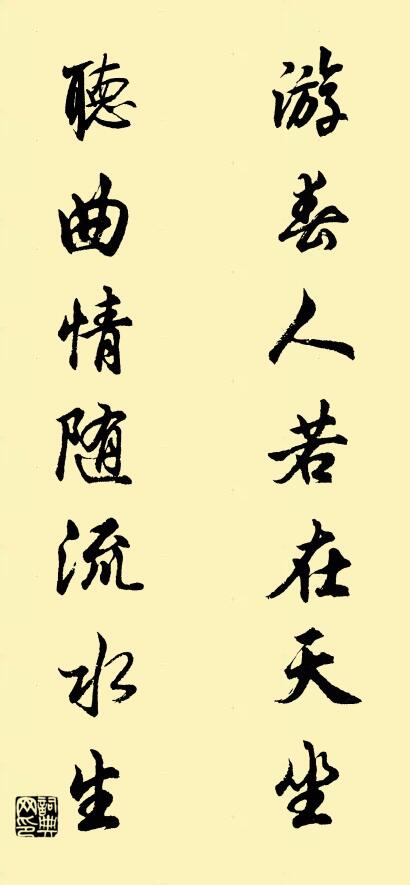 游春人若在天坐
聽曲情随流水生
詞典网印